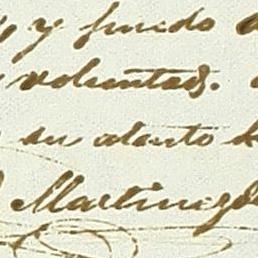 y puedo
voluntad.
su atento
Martinez